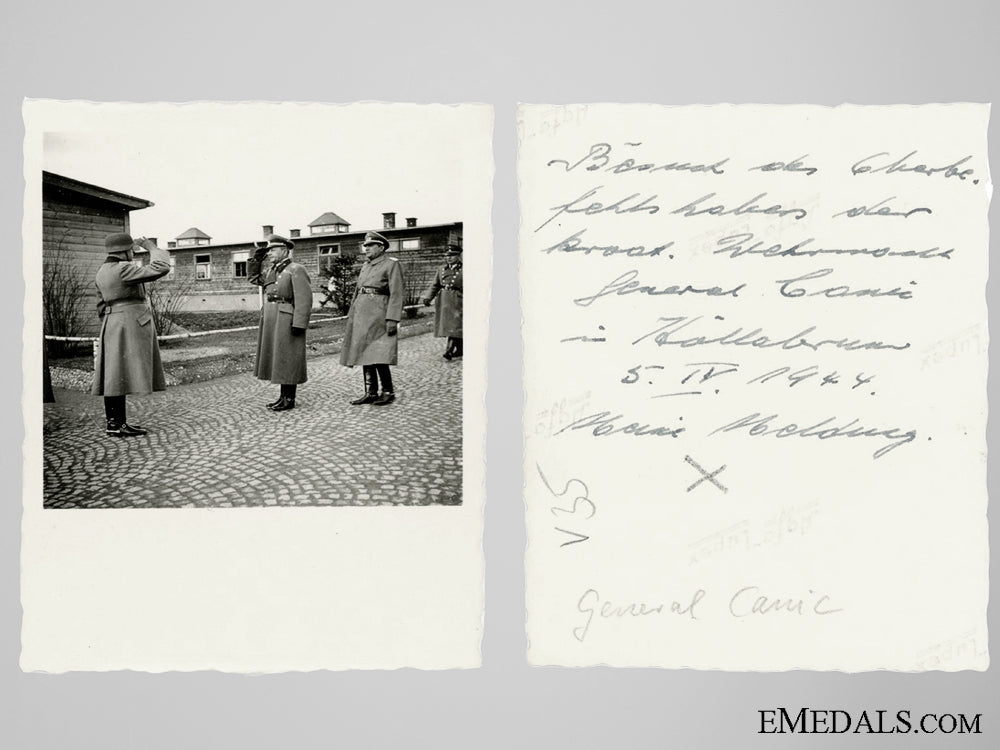 Besuch des Oberbe-
fehlshabers der
kroat. Wehrmacht
General Canic
in Hollabrunn
5. IV. 1944.
Meine Meldung.
X
V35
General Canic
EMEDALS.COM